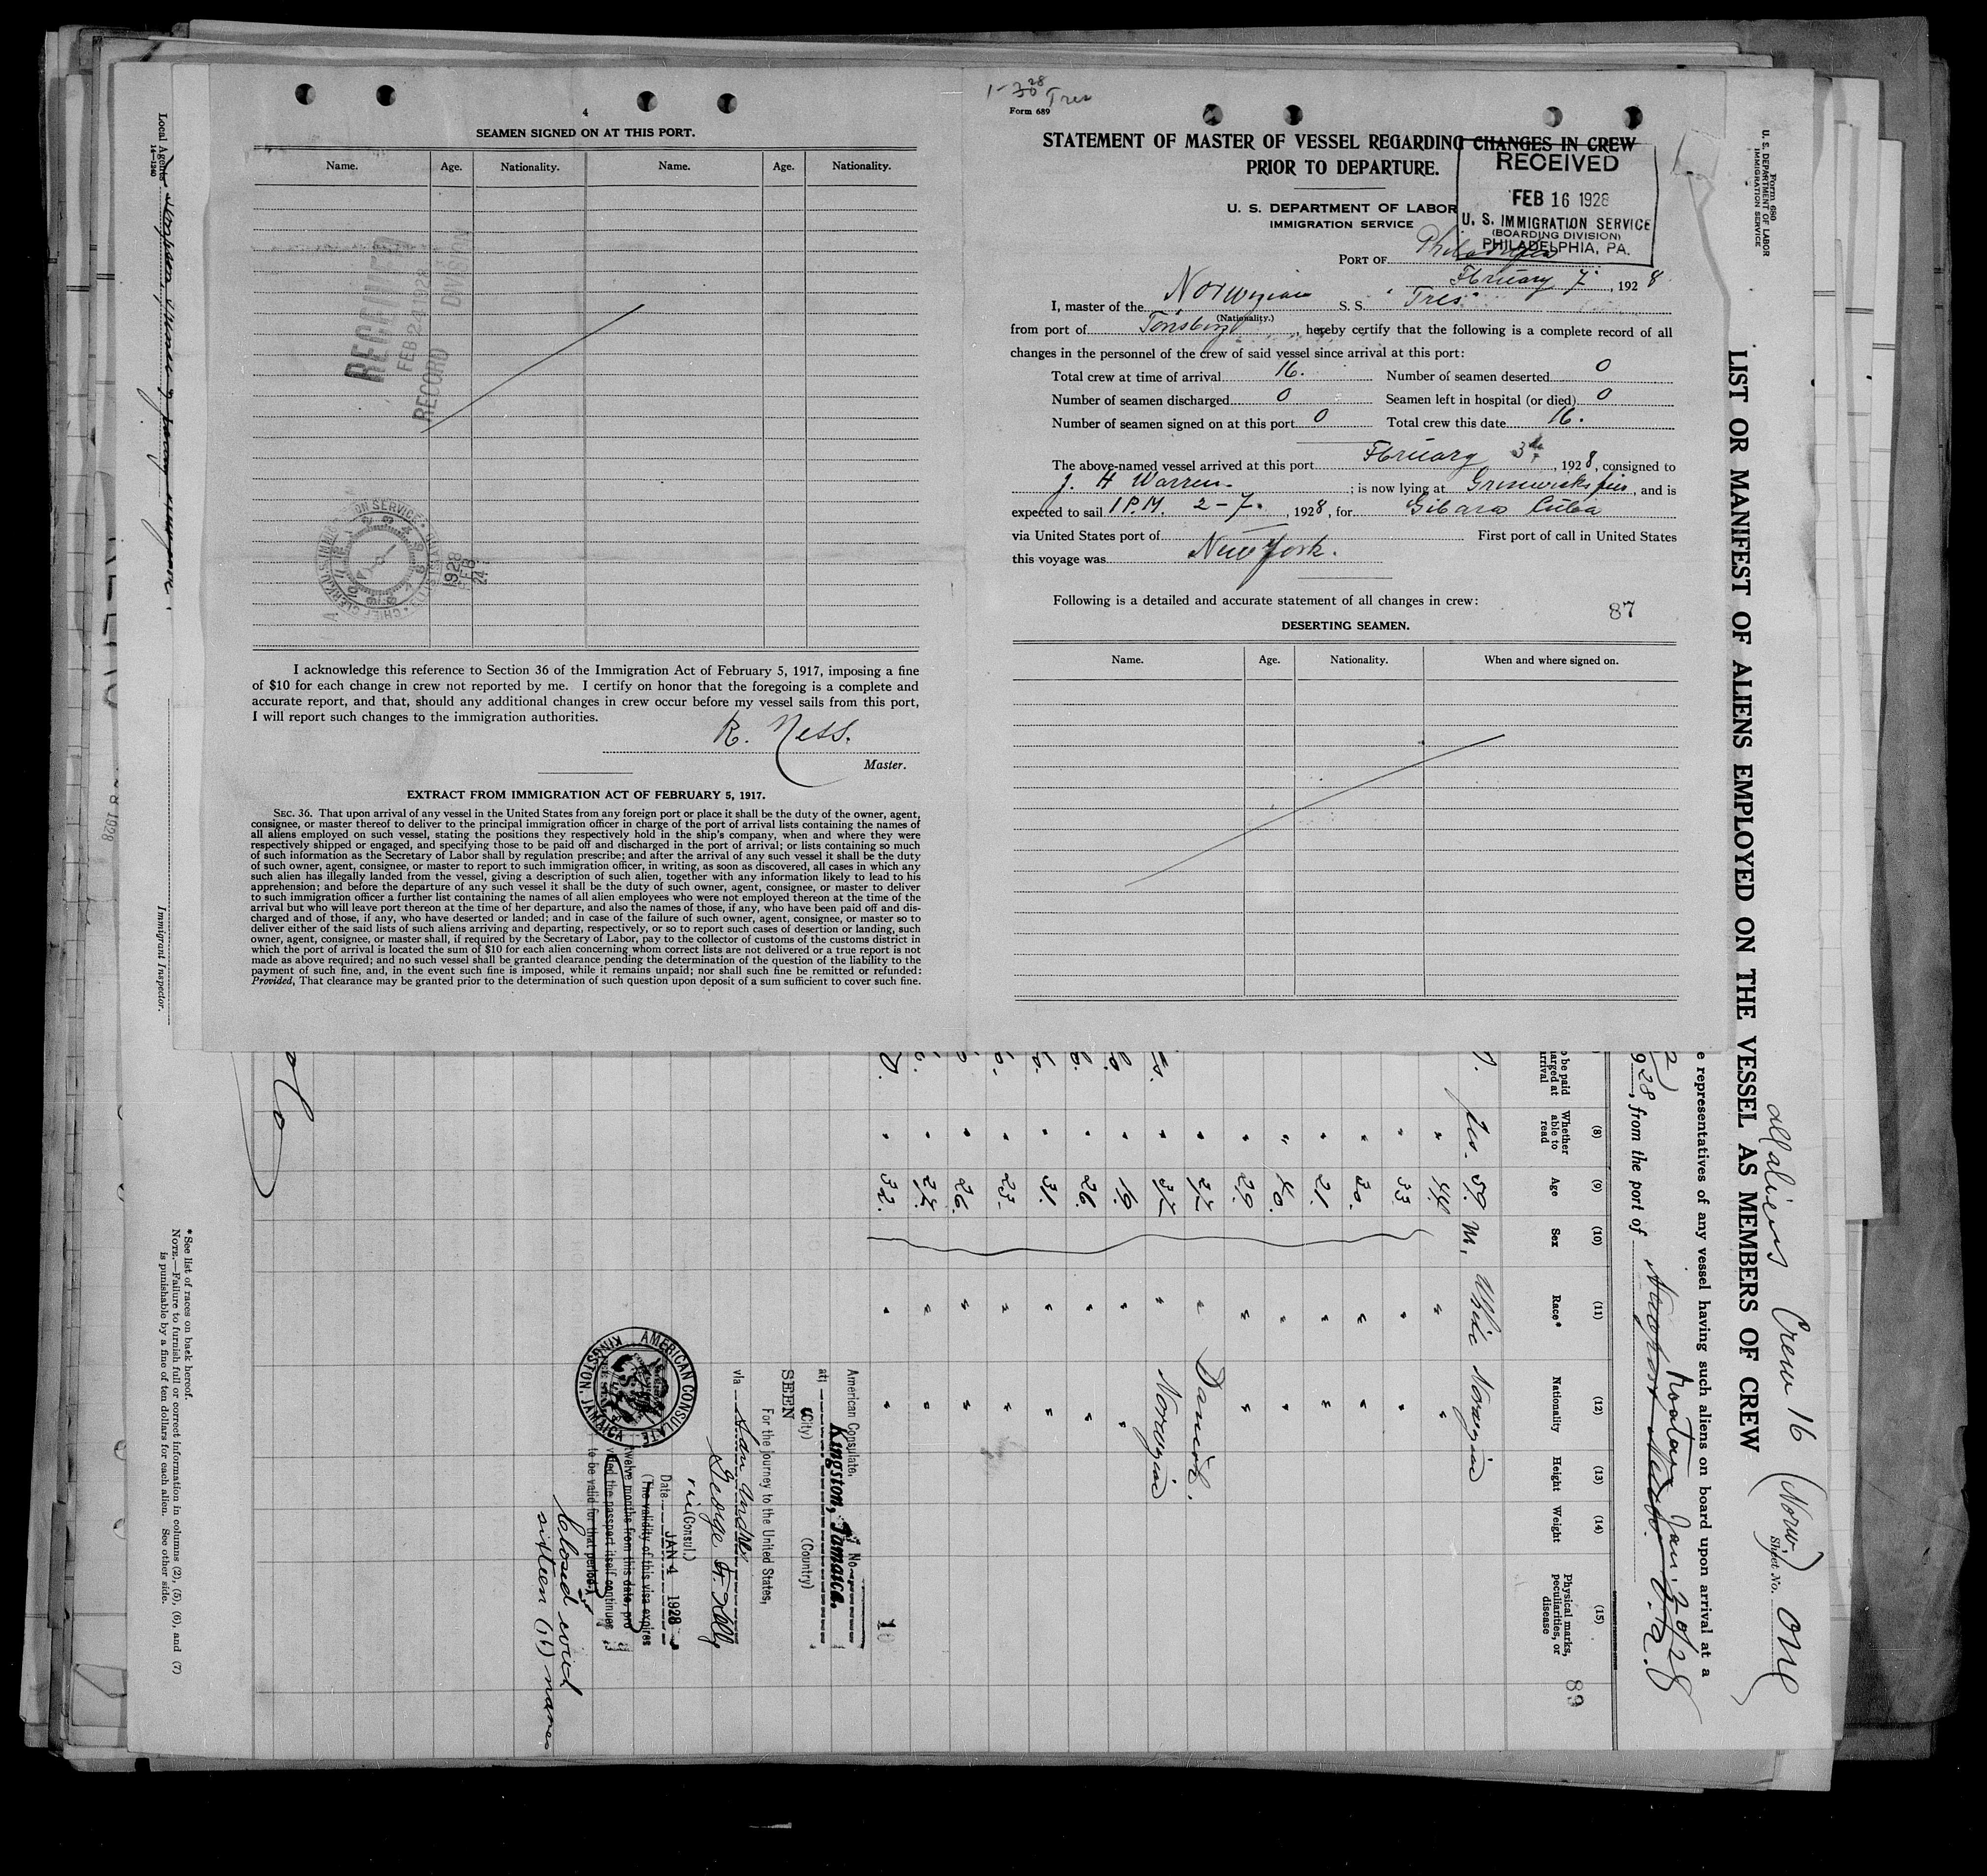 4
SEAMEN SIGNED ON AT THIS PORT.
Name. Age. Nationality. Name. Age. Nationality.
RECEIVED
FEB 24 1928
RECORD DIVISION
1928
FEB
24
I acknowledge this reference to Section 36 of the Immigration Act of February 5, 1917, imposing a fine
of $10 for each change in crew not reported by me. I certify on honor that the foregoing is a complete and
accurate report, and that, should any additional changes in crew occur before my vessel sails from this port,
I will report such changes to the immigration authorities.
R. Ness.
Master.
EXTRACT FROM IMMIGRATION ACT OF FEBRUARY 5, 1917.
SEC. 36. That upon arrival of any vessel in the United States from any foreign port or place it shall be the duty of the owner, agent,
consignee, or master thereof to deliver to the principal immigration officer in charge of the port of arrival lists containing the names of
all aliens employed on such vessel, stating the positions they respectively hold in the ship's company, when and where they were
respectively shipped or engaged, and specifying those to be paid off and discharged in the port of arrival; or lists containing so much
of such information as the Secretary of Labor shall by regulation prescribe; and after the arrival of any such vessel it shall be the duty
of such owner, agent, consignee, or master to report to such immigration officer, in writing, as soon as discovered, all cases in which any
such alien has illegally landed from the vessel, giving a description of such alien, together with any information likely to lead to his
apprehension; and before the departure of any such vessel it shall be the duty of such owner, agent, consignee, or master to deliver
to such immigration officer a further list containing the names of all alien employees who were not employed thereon at the time of the
arrival but who will leave port thereon at the time of her departure, and also the names of those, if any, who have been paid off and dis-
charged and of those, if any, who have deserted or landed; and in case of the failure of such owner, agent, consignee, or master so to
deliver either of the said lists of such aliens arriving and departing, respectively, or so to report such cases of desertion or landing, such
owner, agent, consignee, or master shall, if required by the Secretary of Labor, pay to the collector of customs of the customs district in
which the port of arrival is located the sum of $10 for each alien concerning whom correct lists are not delivered or a true report is not
made as above required; and no such vessel shall be granted clearance pending the determination of the question of the liability to the
payment of such fine, and, in the event such fine is imposed, while it remains unpaid; nor shall such fine be remitted or refunded:
Provided, That clearance may be granted prior to the determination of such question upon deposit of a sum sufficient to cover such fine.
1-30 28 Tres
Form 689
STATEMENT OF MASTER OF VESSEL REGARDING CHANGES IN CREW
PRIOR TO DEPARTURE.
RECEIVED
FEB 16 1928
U. S. IMMIGRATION SERVICE
(BOARDING DIVISION)
PHILADELPHIA, PA.
U. S. DEPARTMENT OF LABOR
IMMIGRATION SERVICE
PORT OF Philadelphia
Fbruary 7, 1928
I, master of the Norwegian S. S. "Tres"
(Nationality.)
from port of Tönsberg, hereby certify that the following is a complete record of all
changes in the personnel of the crew of said vessel since arrival at this port:
Total crew at time of arrival 16. Number of seamen deserted 0
Number of seamen discharged 0 Seamen left in hospital (or died) 0
Number of seamen signed on at this port 0 Total crew this date 16.
The above-named vessel arrived at this port Fbruary 3, 1928, consigned to
J. H Warren ; is now lying at Grinwicks pier, and is
expected to sail 1 P.M. 2-7. , 1928, for Gibara Cuba
via United States port of First port of call in United States
this voyage was New York.
Following is a detailed and accurate statement of all changes in crew:
87
DESERTING SEAMEN.
Name. Age. Nationality. When and where signed on.
Form 680
U. S. DEPARTMENT OF LABOR
IMMIGRATION SERVICE
all aliens Crew 16 (Norw.) Sheet No. One
LIST OR MANIFEST OF ALIENS EMPLOYED ON THE VESSEL AS MEMBERS OF CREW
e representatives of any vessel having such aliens on board upon arrival at a
928, from the port of
(8) (9) (10) (11) (12) (13) (14) (15)
Whether able to read Age Sex Race* Nationality Height Weight Physical marks, peculiarities, or disease
89
Yes. 59 M. White Norwegian
" 44 " "
" 33 " "
" 30. " "
" 21. " "
" 40. " "
" 29. " "
" " Danish.
" " Norwegian
" 19. " "
" 26. " "
" 31. " "
" 23. " "
" 26. " "
" " "
" 32. " "
10
American Consulate,
Kingston, Jamaica.
at
(City) (Country)
SEEN
For the journey to the United States,
via San Andres
George
Vice (Consul.)
Date JAN 4 1928
(The validity of this visa expires
twelve months from this date, pro
vided the passport itself continues
to be valid for that period.)
AMERICAN CONSULATE KINGSTON, JAMAICA
Closed with
sixteen (16) names
*See list of races on back hereof.
NOTE.—Failure to furnish full or correct information in columns (2), (5), (6), and (7)
is punishable by a fine of ten dollars for each alien. See other side.
Local Agents
Immigrant Inspector.